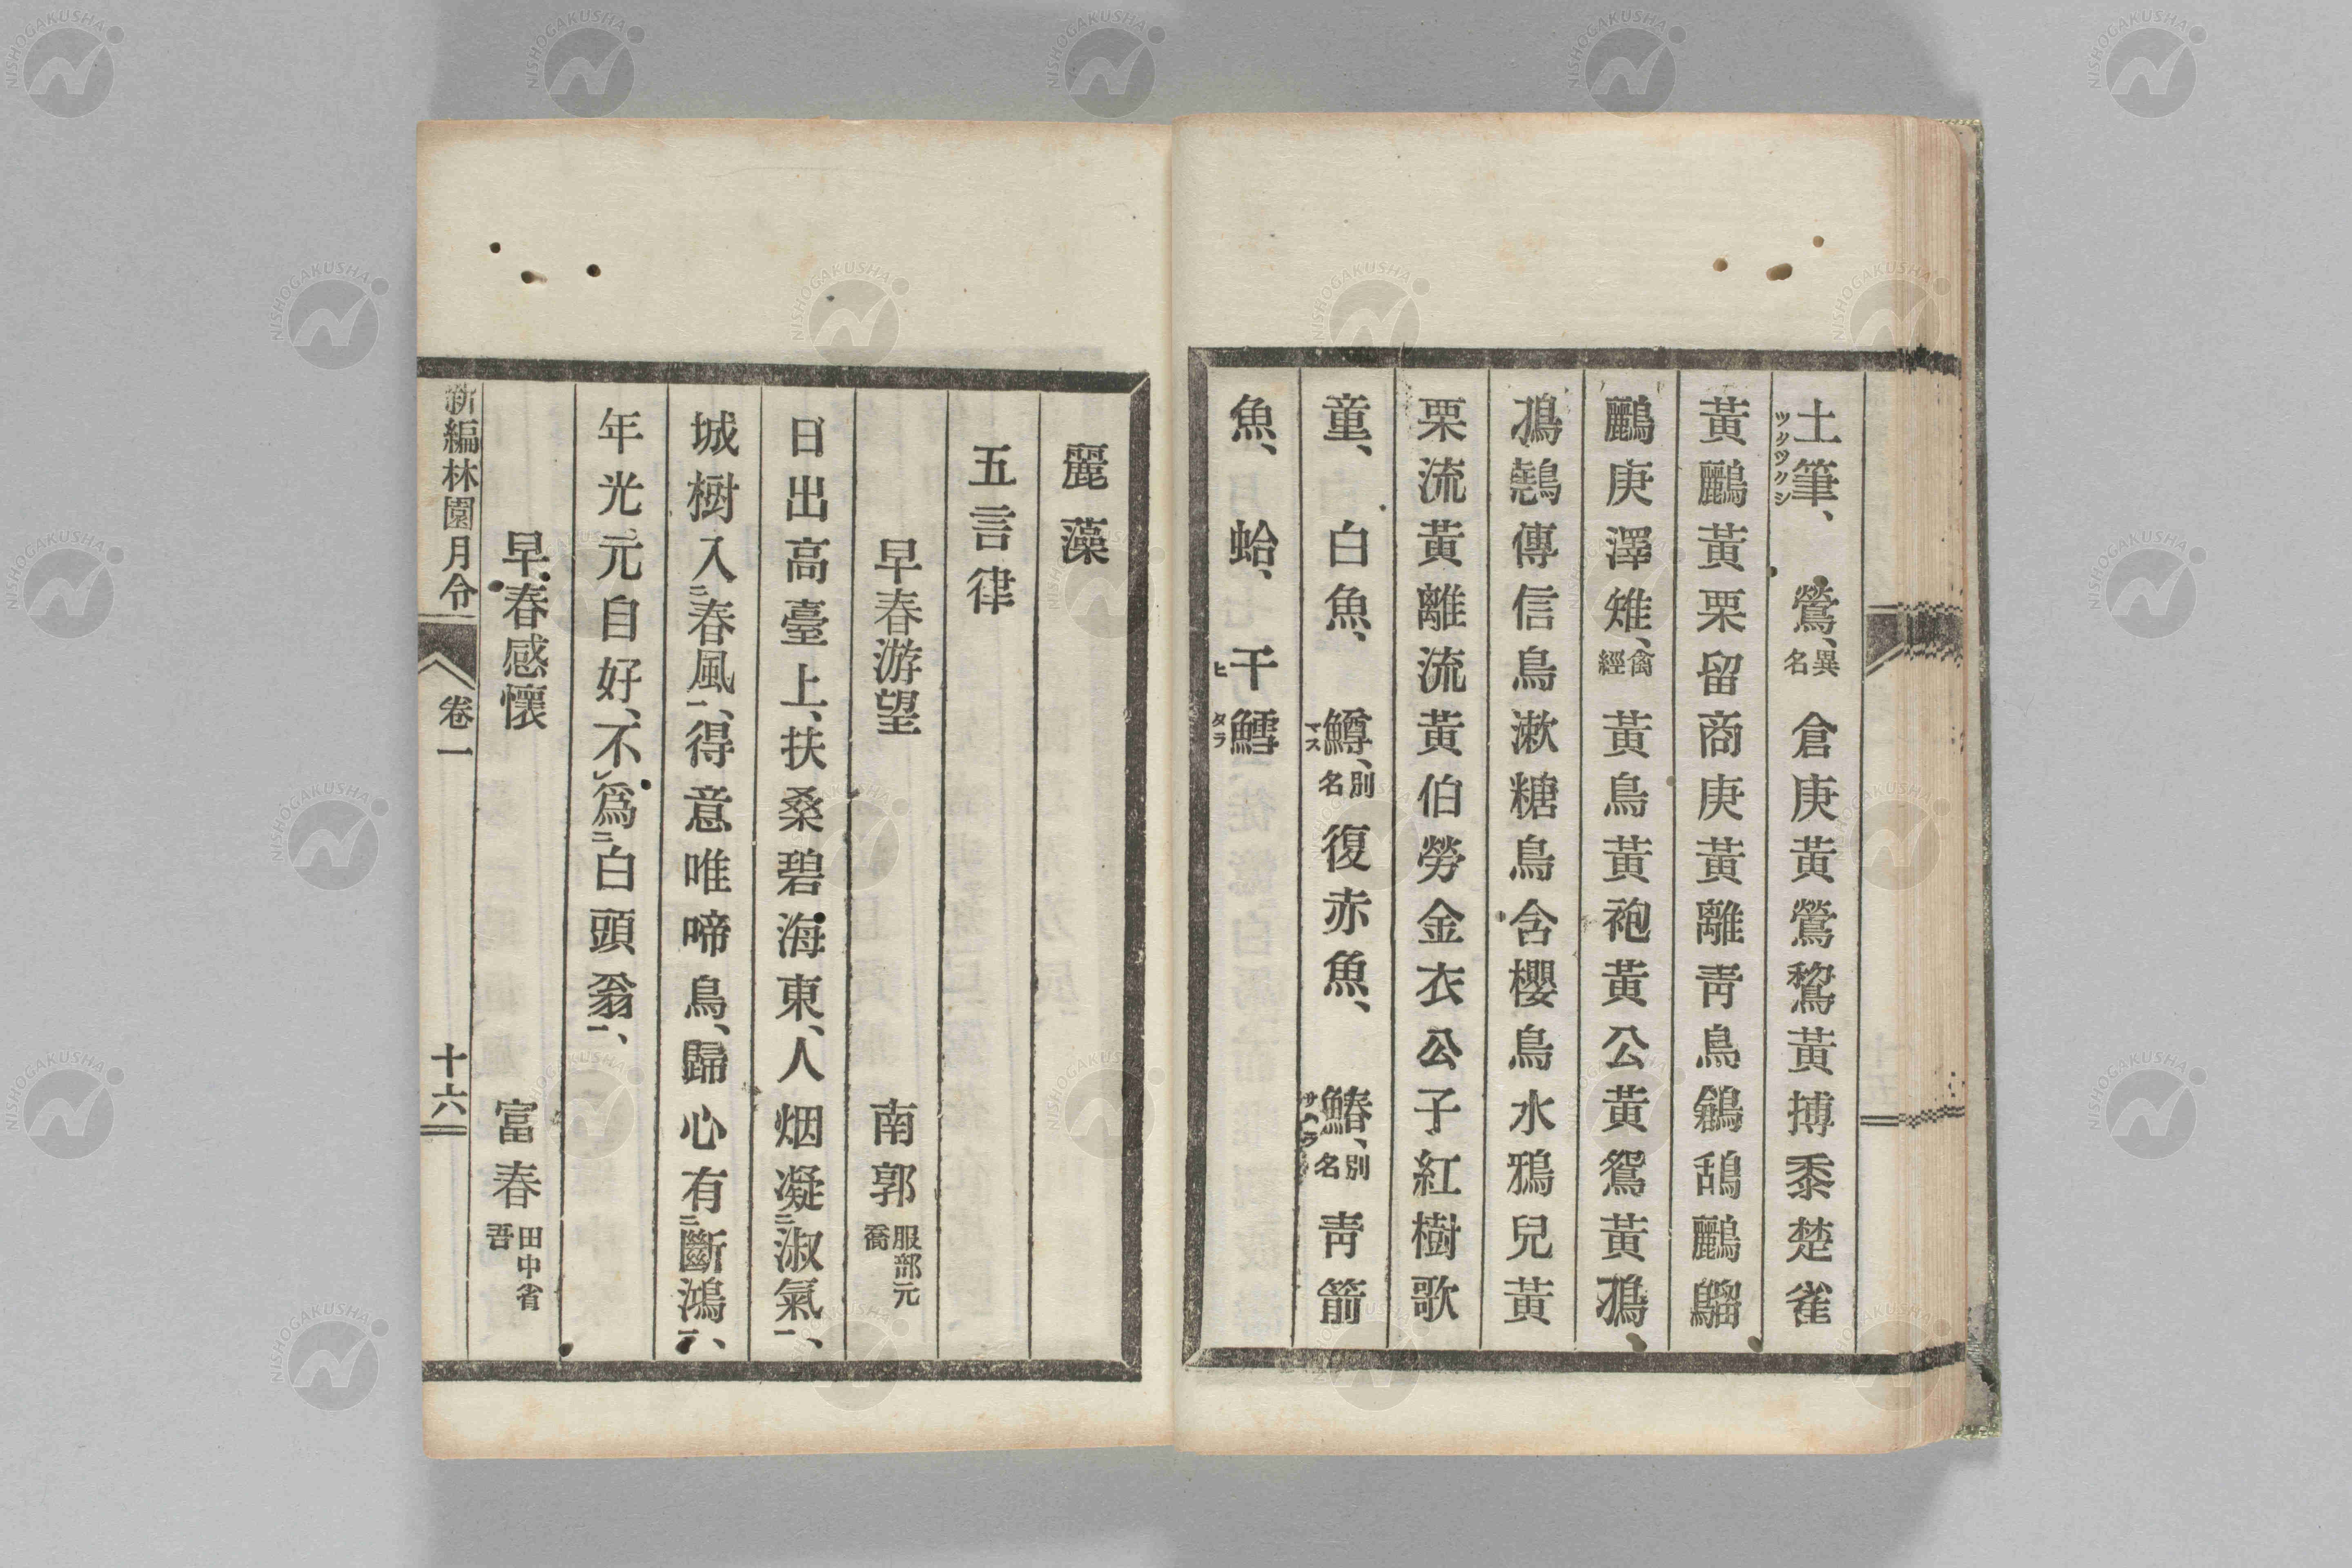 土筆、 鶯、異名 倉庚黃鶯鵹黃搏黍楚雀
ツクツクシ
黃鸝黃栗留商庚黃離靑鳥鶬鴰鸝鶹
鸝庚澤雉、禽經 黃鳥黃袍黃公黃鴛黃鳥、
傳信鳥漱糖鳥含櫻鳥水鴉兒黃
栗流黃離流黃伯勞金衣公子紅樹歌
童、 白魚、 鱒、別名 復赤魚、 鰆、別名 靑箭
マス サハラ
魚、 蛤、 干鱈
ヒ タラ
麗藻
五言律
早春游望 南郭 服部元喬
日出高臺上、扶桑碧海東、人烟凝二淑氣一、
城樹入二春風一、得意唯啼鳥、歸心有二斷鴻一、
年光元自好、不レ爲二白頭翁一、
早春感懷 富春 田中省吾
新編林園月令 卷一 十六
NISHOGAKUSHA